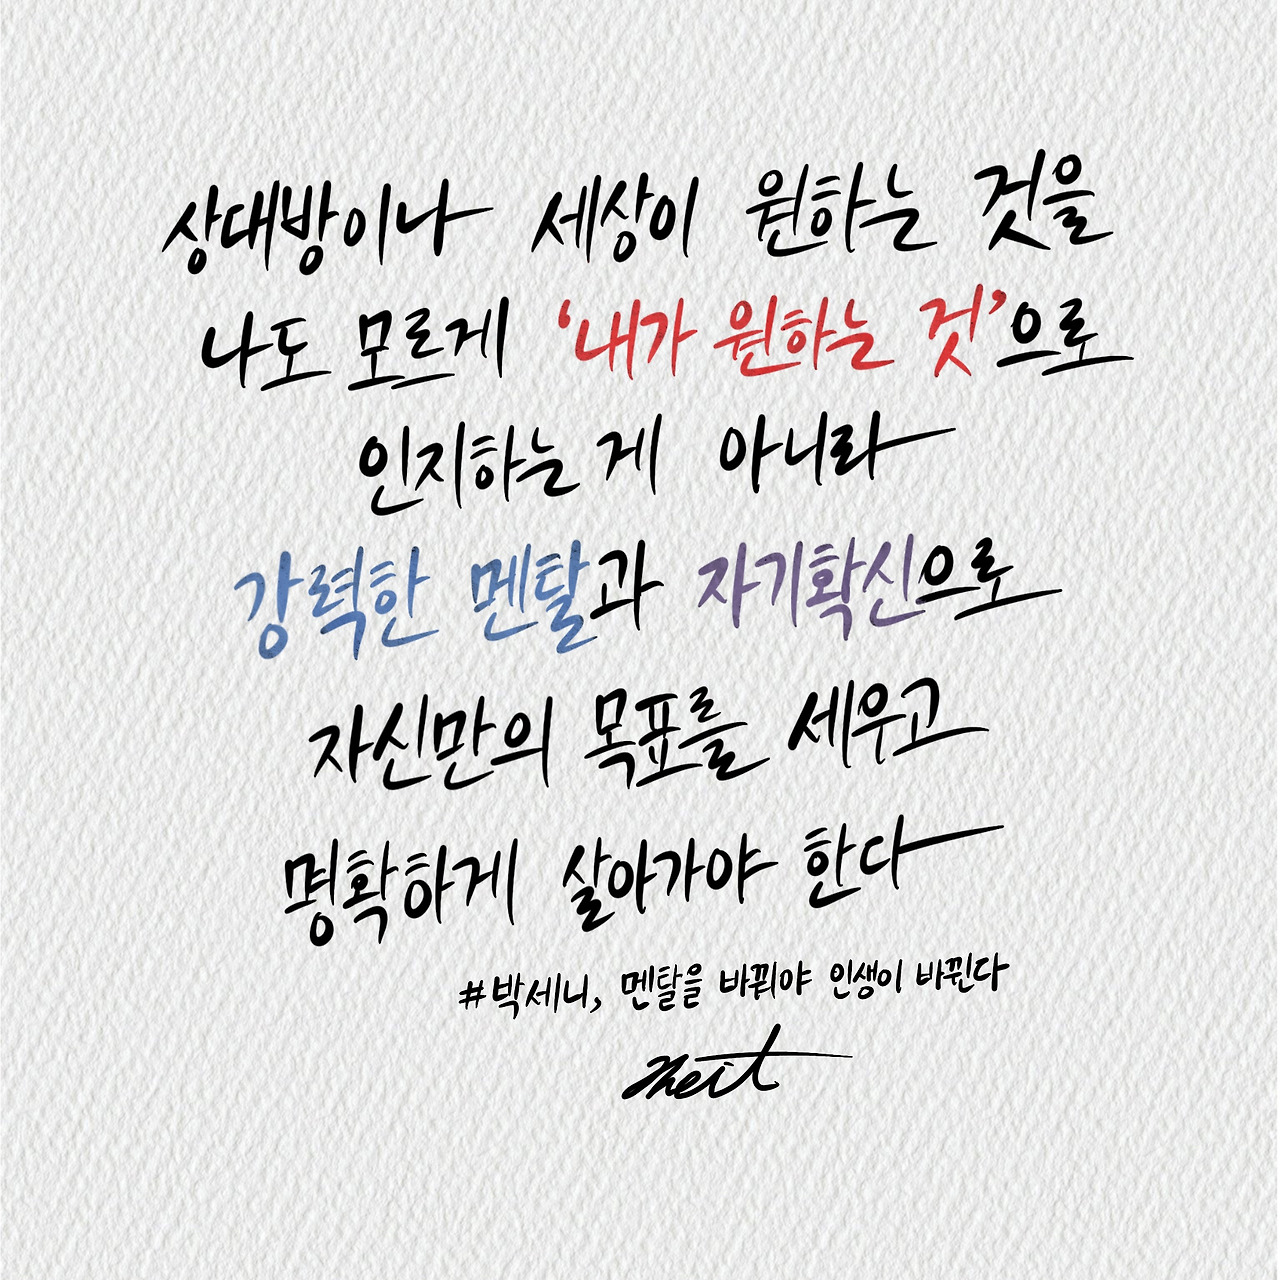 상대방이나 세상이 원하는 것을
나도 모르게 '내가 원하는 것'으로
인지하는 게 아니라
강력한 멘탈과 자기확신으로
자신만의 목표를 세우고
명확하게 살아가야 한다
#박세니, 멘탈을 바꿔야 인생이 바뀐다